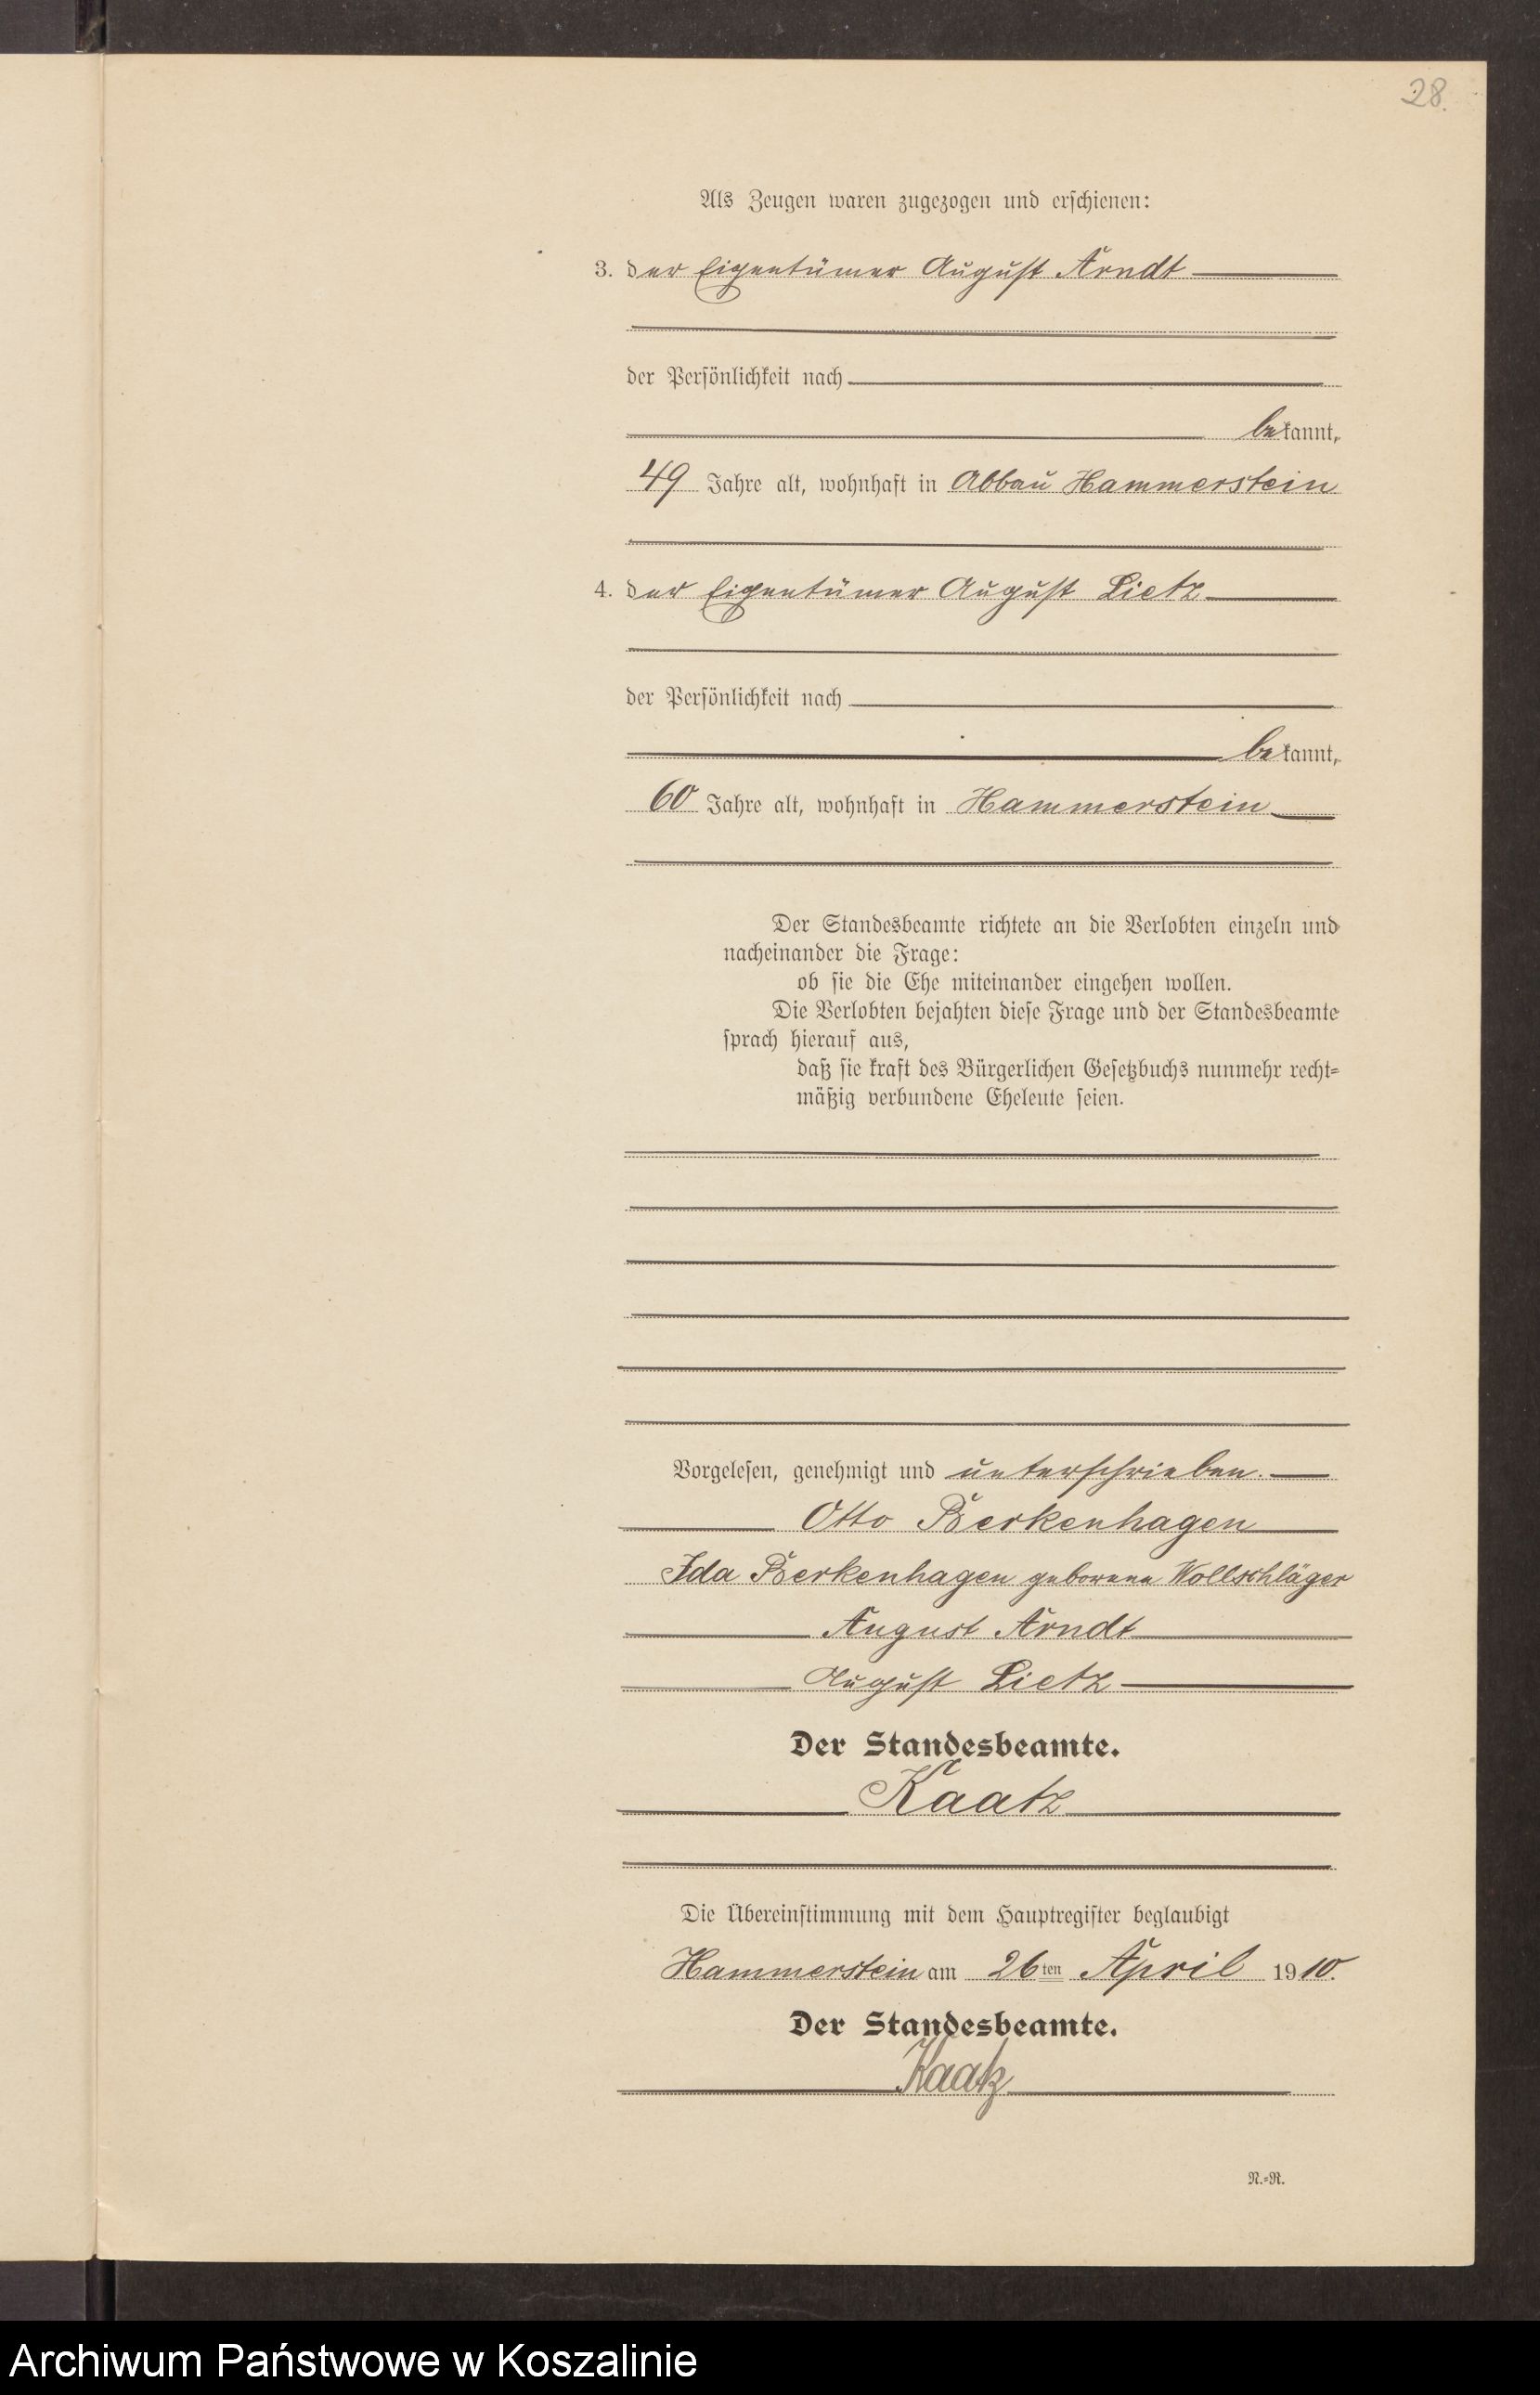 28.
Als Zeugen waren zugezogen und erschienen:
3. der Eigentümer August Arndt
der Persönlichkeit nach
bekannt,
49 Jahre alt, wohnhaft in Abbau Hammerstein
4. der Eigentümer August Lietz
der Persönlichkeit nach
bekannt,
60 Jahre alt, wohnhaft in Hammerstein
Der Standesbeamte richtete an die Verlobten einzeln und
nacheinander die Frage:
ob sie die Ehe miteinander eingehen wollen.
Die Verlobten bejahten diese Frage und der Standesbeamte
sprach hierauf aus,
daß sie kraft des Bürgerlichen Gesetzbuchs nunmehr recht=
mäßig verbundene Eheleute seien.
Vorgelesen, genehmigt und unterschrieben.
Otto Berkenhagen
Ida Berkenhagen geborene Wollschläger
August Arndt
August Lietz
Der Standesbeamte.
Kaatz
Die Übereinstimmung mit dem Hauptregister beglaubigt
Hammerstein am 26ten April 1910.
Der Standesbeamte.
Kaatz
N.=R.
Archiwum Państwowe w Koszalinie